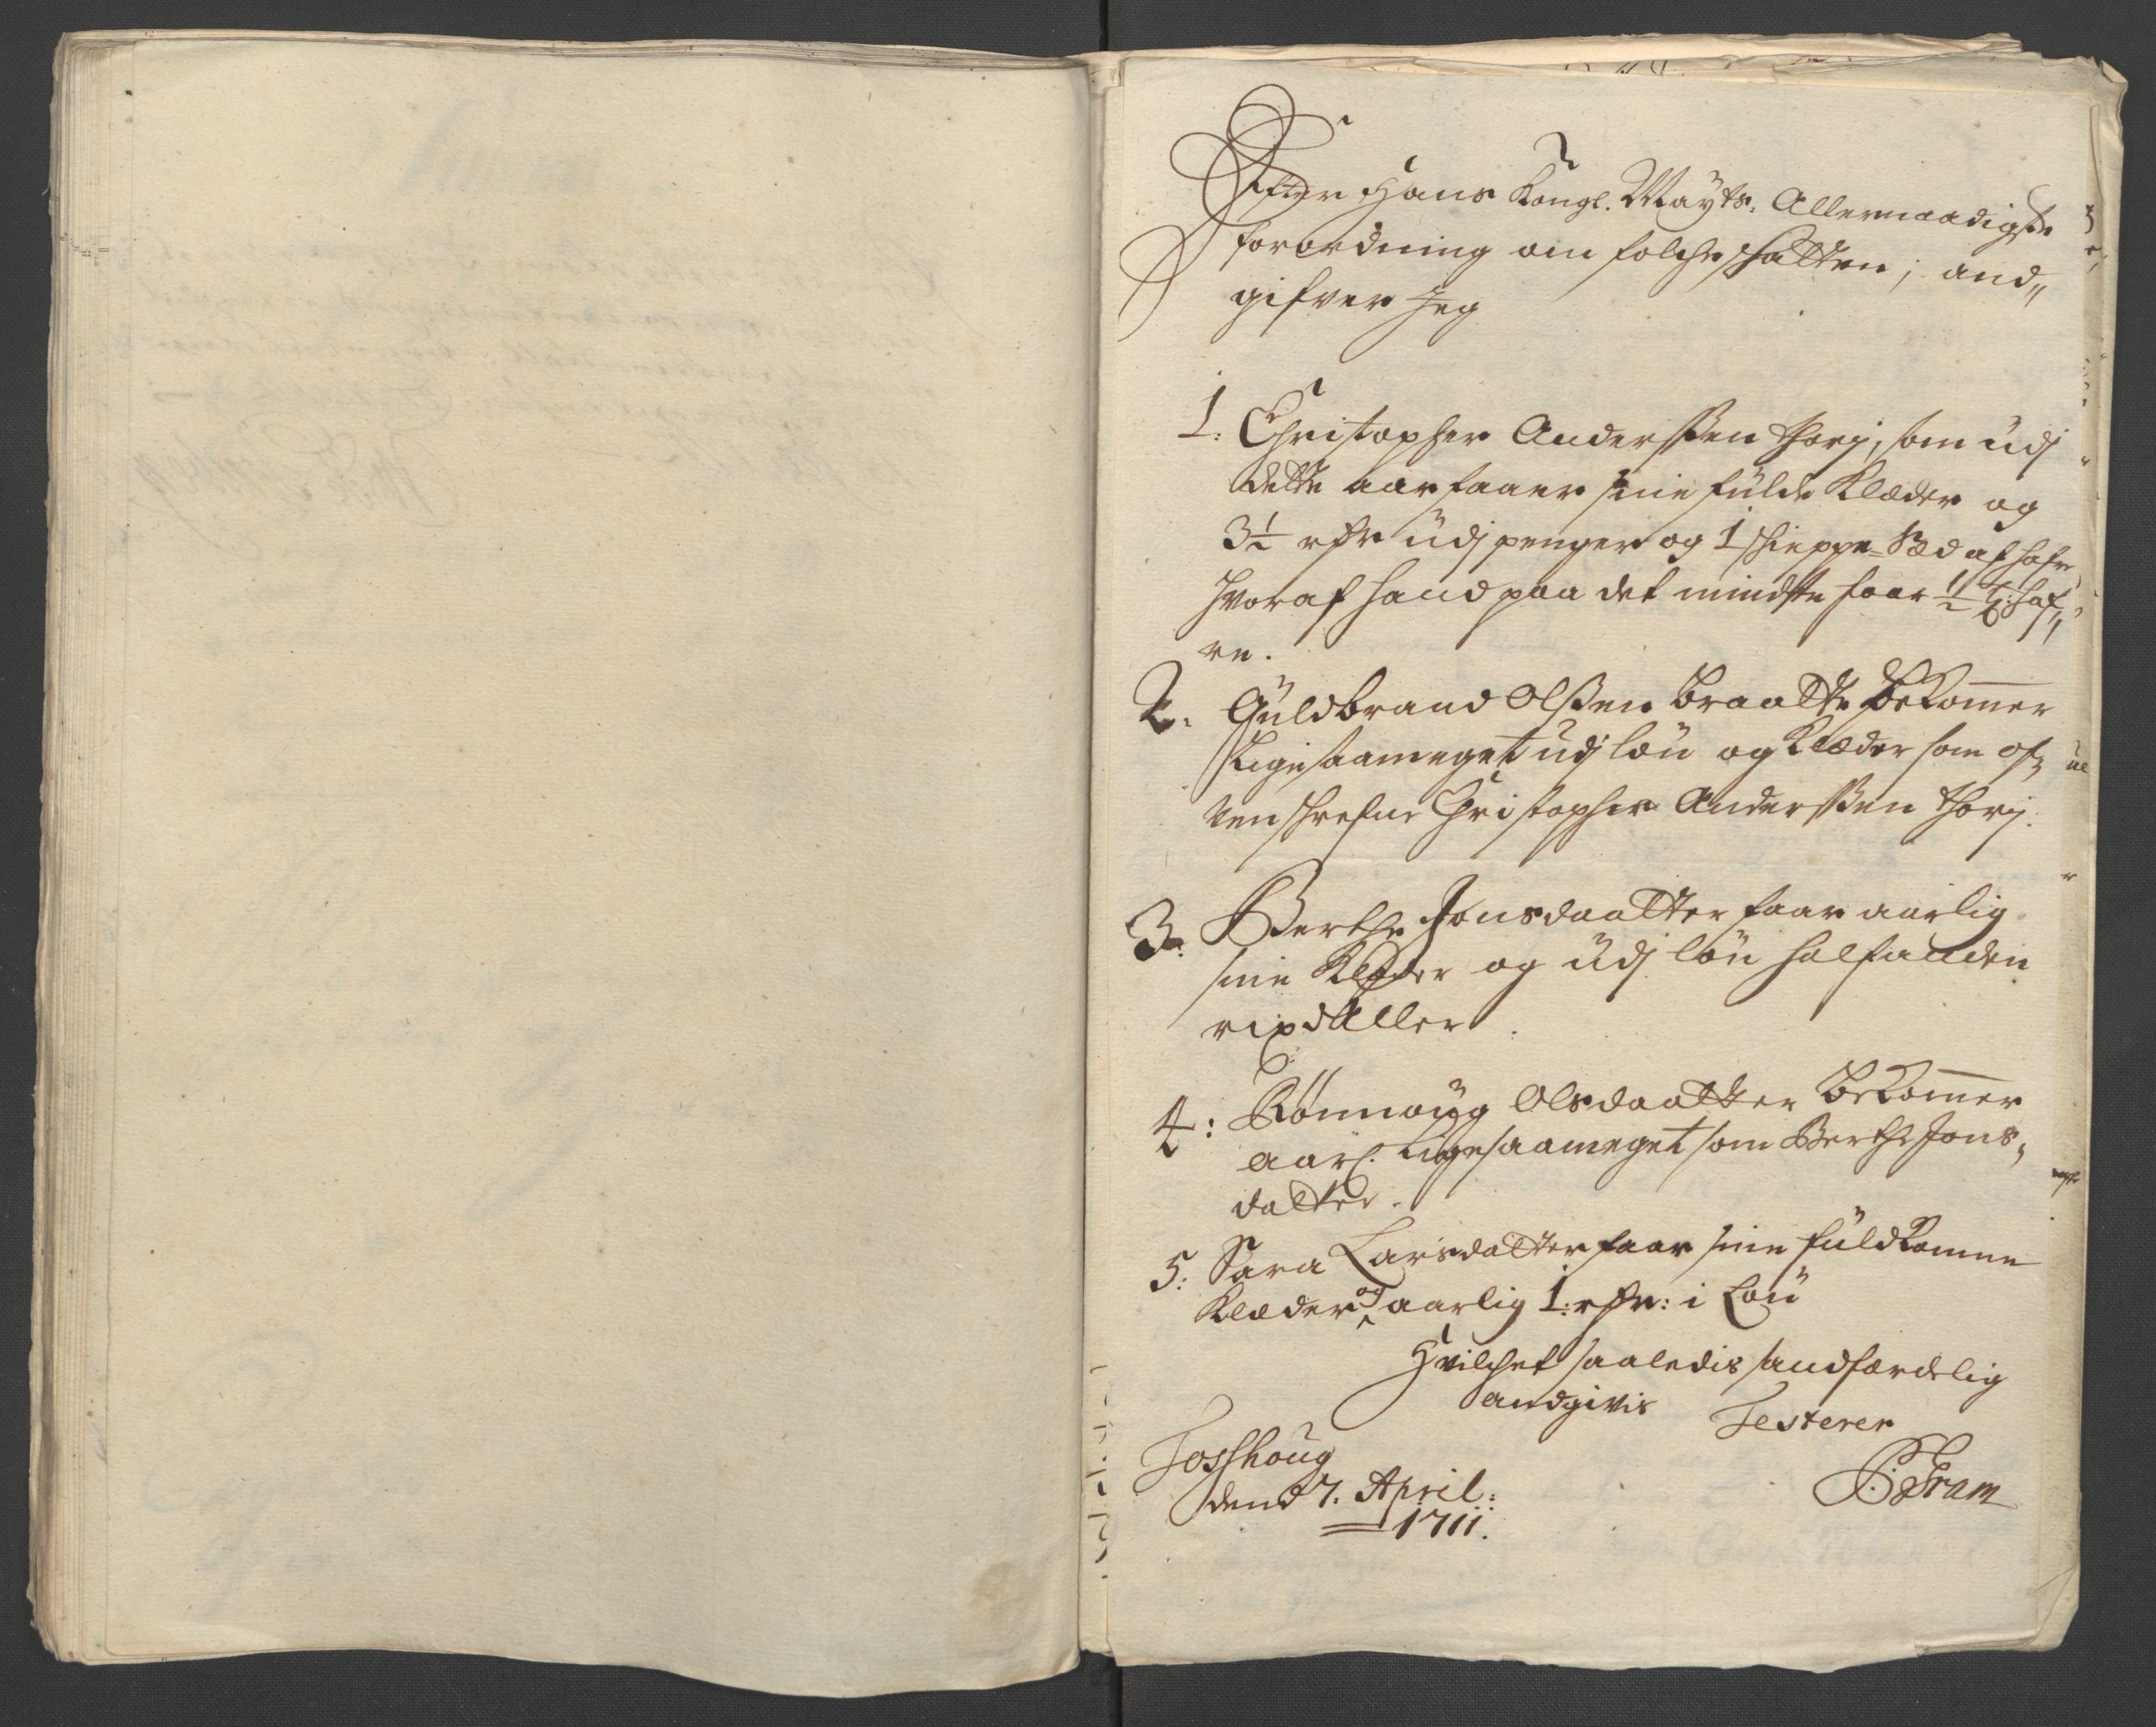 Efter Hans Kongl. Mayts. Allernaadigste
forordning om folcheschatten; and„
gifver Jeg
1: Christopher Anderssen thorj, som udj
dette aar faaer sine fulde Klæder og
3½ rdr udj penger og 1 schieppe Sæd af hafr
hvoraf hand paa det mindste faar ½ t: haf„
re.
2. Guldbrand Olssen Braatte bekommer
Ligesaameget udj løn og Klæder som of„
venschrefne Christopher Anderssen thorj.
3. Berthe Jonsdaatter faar aarlig
sine Klæder og udj løn halfanden
rixdaller.
4: Rønnoug Olsdaatter bekommer
aarl. Ligesaameget som Berthe Jons„
datter.
5: Sara Larsdatter faar sine fuldkomne
Klæder og aarlig 1: rdr: i Løn
Hvilchet saaledis sandfærdelig
andgivis Testerer
Fosshoug
dend 7. April: P: Fram
1711.